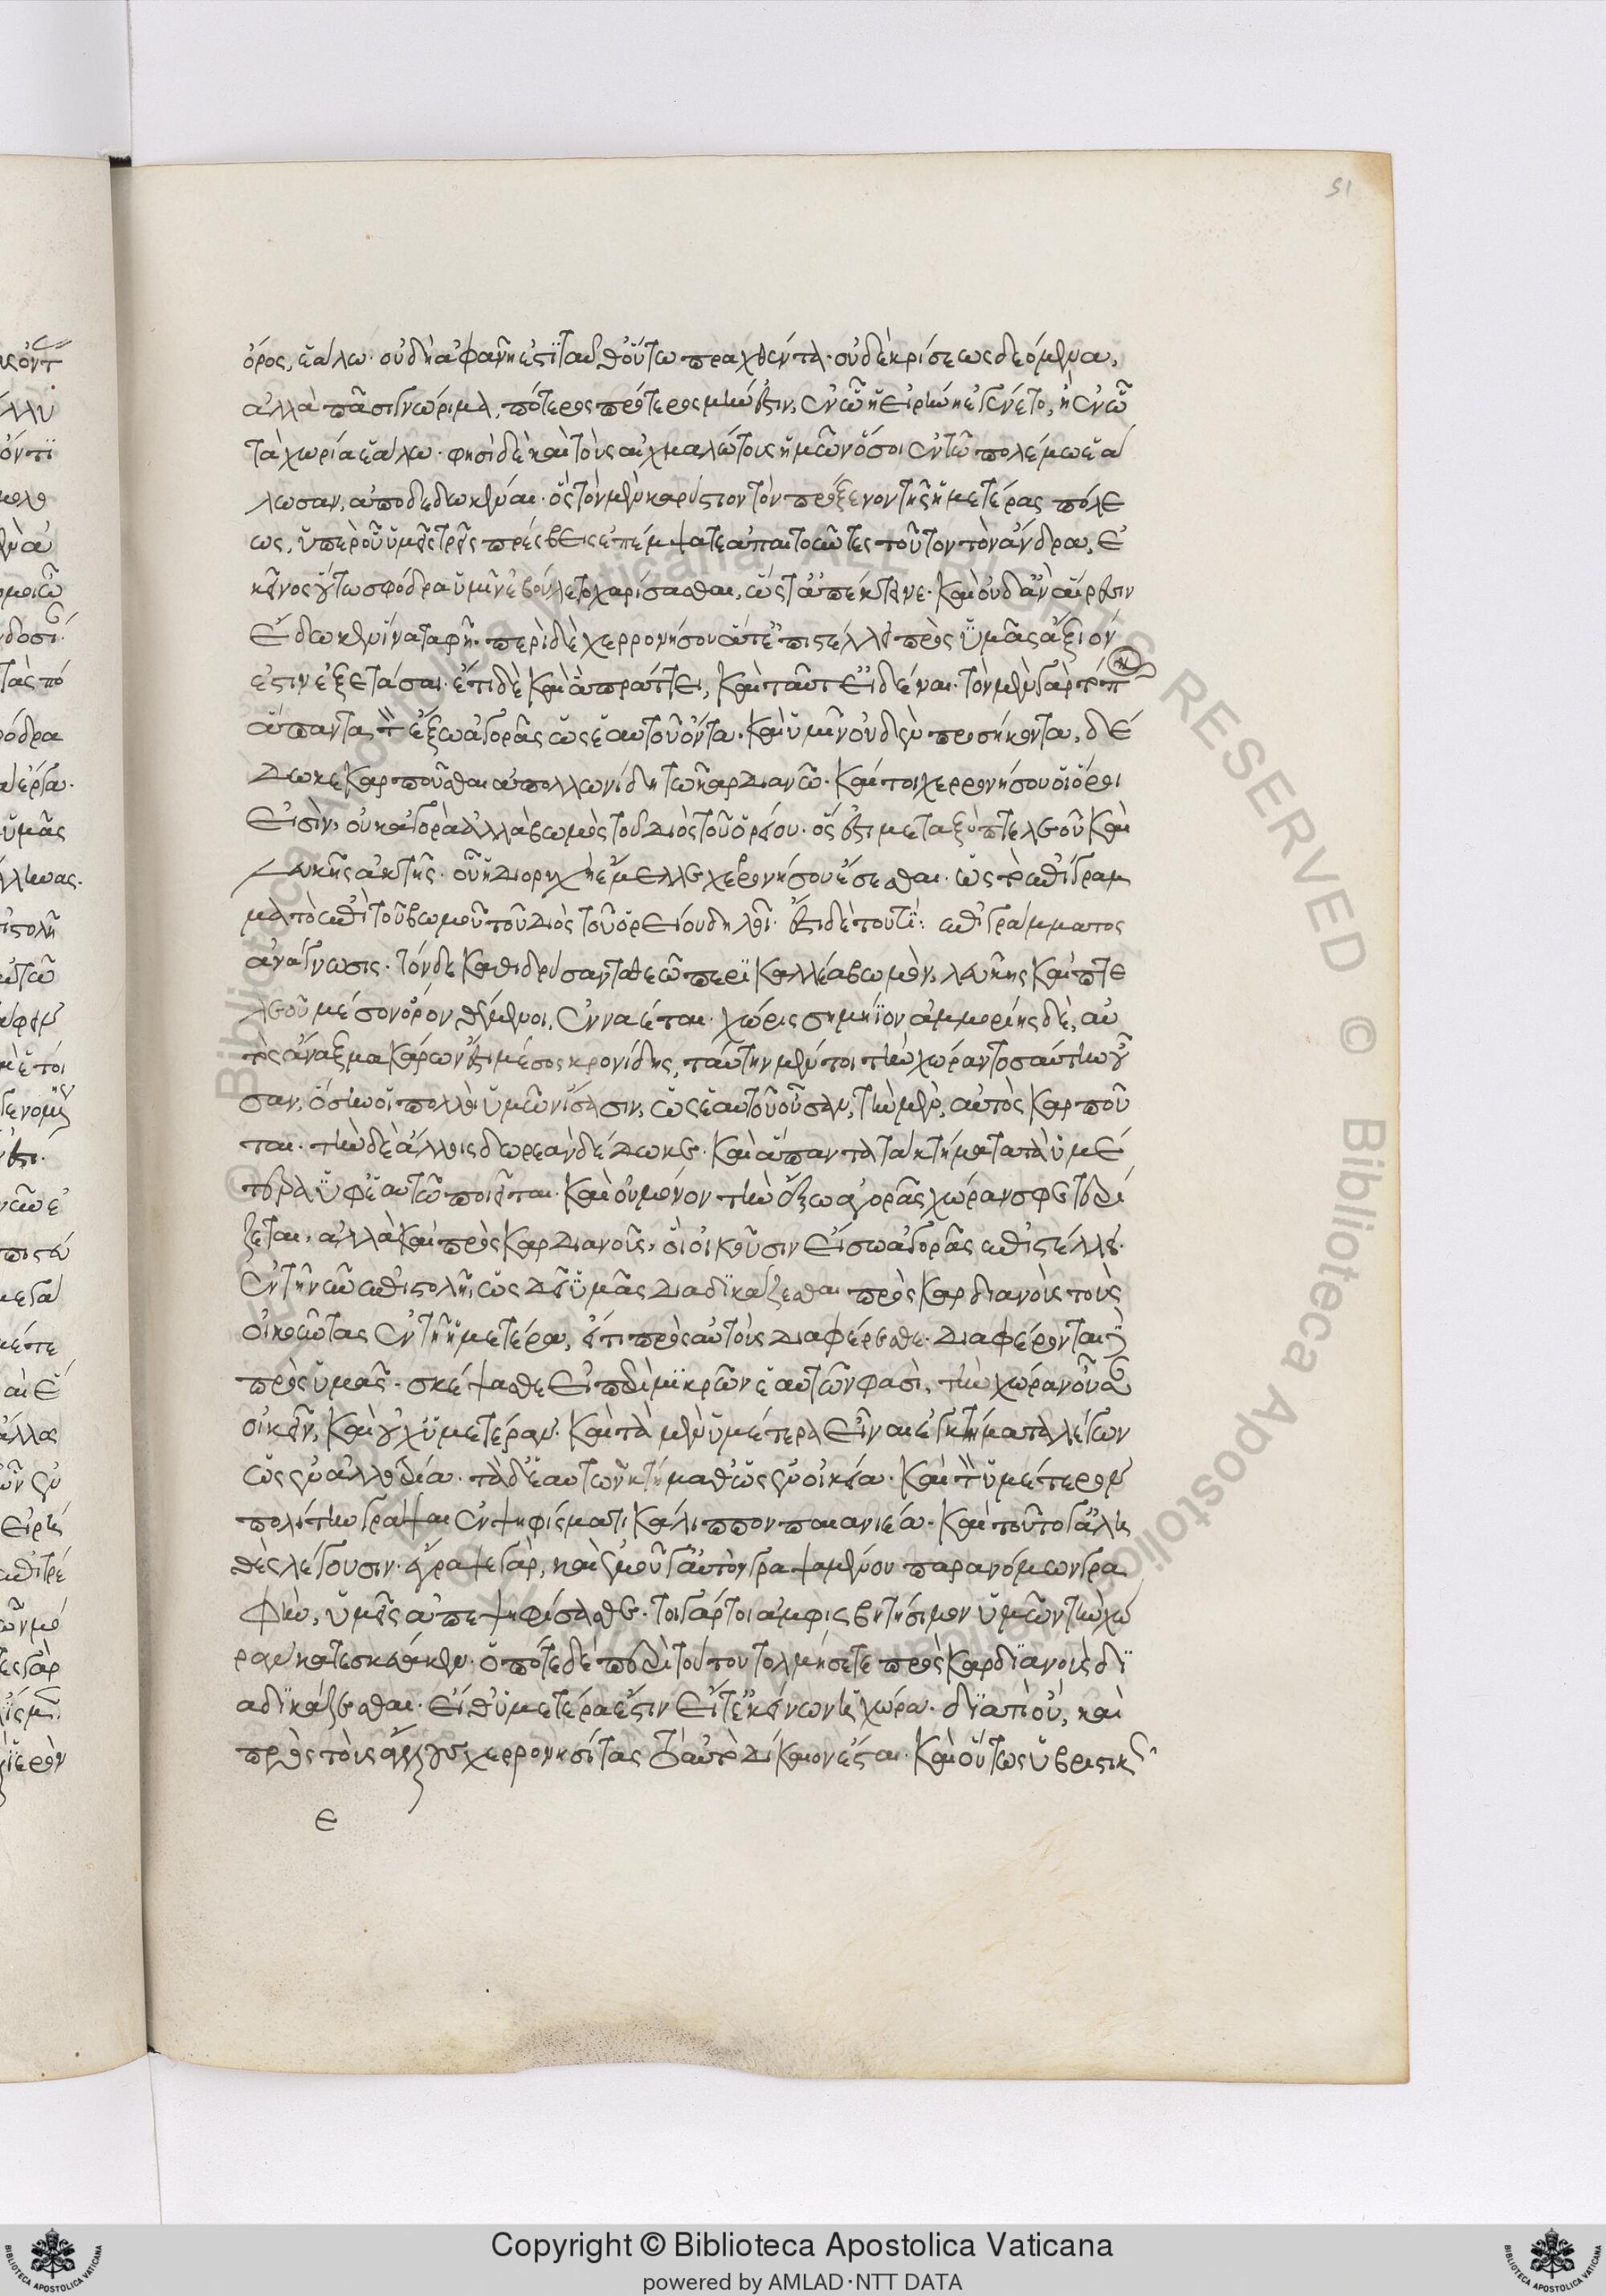 51
ὄρος, ἑάλω. οὐδ' ἀφανῆ ἐστὶ ταῦθ' οὕτω πραχθέντα. οὐδὲ κρίσεως δεόμενα,
ἀλλὰ πᾶσι γνώριμα, πότερος πρότερος μήν ἐστιν, ἐν ᾧ ἡ εἰρήνη ἐγένετο, ἢ ἐν ᾧ
τὰ χωρία ἑάλω. φησὶ δὲ καὶ τοὺς αἰχμαλώτους ἡμῶν ὅσοι ἐν τῷ πολέμω ἑά
λωσαν, ἀποδεδωκέναι. ὃς τὸν μὲν καρύστιον τὸν πρόξενον τῆς ἡμετέρας πόλε
ως, ὑπὲρ οὗ ὑμεῖς τρεῖς πρέσβεις ἐπέμψατε ἀπαιτοῦντες τοῦτον τὸν ἄνδρα, ἐ
κεῖνος οὕτω σφόδρα ὑμῖν ἐβούλετο χαρίσασθαι, ὥστ' ἀπέκτεινε. καὶ οὐδ' ἀναίρεσιν
ἔδωκεν ἵνα ταφῆ. περὶ δὲ χερρονήσου ἅ τ' ἐπιστέλλει πρὸς ὑμᾶς ἄξιόν
ἐστιν ἐξετάσαι. ἔτι δὲ καὶ ἃ πράττει, καὶ ταῦτ' εἰδέναι. τὸν μὲν γὰρ τόπ
ἅπαντα τὸν ἔξω ἀγορᾶς ὡς ἑαυτοῦ ὄντα. καὶ ὑμῖν οὐδὲν προσήκοντα, δέ
δωκε καρποῦσθαι ἀπολλωνίδη τῷ καρδιανῷ. καίτοι χερρονήσου οἱ ὅροι
εἰσὶν, οὐκ ἀγορὰ ἀλλὰ βωμὸς τοῦ διὸς τοῦ ὁρίου. ὅς ἐστι μεταξὺ πτελεοῦ καὶ
λευκῆς ἀκτῆς. οὗ ἡ διορυχὴ ἔμελλε χερονήσου ἔσεσθαι. ὡς τὸ ἐπίγραμ
μα τὸ ἐπὶ τοῦ βωμοῦ τοῦ διὸς τοῦ ὁρείου δηλοῖ. ἔστι δὲ τουτί: ἐπιγράμματος
ἀνάγνωσις. τόνδε καθιδρύσαντο θεῷ περικαλλέα βωμὸν, λευκῆς καὶ πτε
λεοῦ μέσον ὅρον θέμενοι, ἐνναέται. χώρης σημήϊον ἀμμορίης δὲ, αὐ
τὸς ἄναξ μακάρων ἐστὶ μέσος κρονίδης, ταύτην μέντοι τὴν χώραν τοσαύτην οὖ
σαν, ὅσην οἱ πολλοὶ ὑμῶν ἴσασιν, ὡς ἑαυτοῦ οὖσαν, τὴν μὲν, αὐτὸς καρποῦ
ται. τὴν δὲ ἄλλοις δωρεὰν δέδωκε. καὶ ἅπαντα τὰ κτήματα τὰ ὑμέ
τερα ὑφ' ἑαυτῷ ποιεῖται. καὶ οὐ μόνον τὴν ἔξω ἀγορᾶς χώραν σφετερί
ζεται, ἀλλὰ καὶ πρὸς καρδιανοὺς, οἳ οἰκοῦσιν εἴσω ἀγορᾶς ἐπιστέλλει.
ἐν τῇ νῦν ἐπιστολῇ, ὡς δεῖ ὑμᾶς διαδικάζεσθαι πρὸς καρδιανοὺς τοὺς
οἰκοῦντας ἐν τῇ ἡμετέρα, εἴ τι πρὸς αὐτοὺς διαφέρεσθε. διαφέρονται δὲ
πρὸς ὑμᾶς. σκέψασθε εἰ περὶ μικρῶν ἑαυτῶν φασὶ, τὴν χώραν οὖσαν
οἰκεῖν, καὶ οὐχ' ὑμετέραν. καὶ τὰ μὲν ὑμέτερα εἶναι ἐγκτήματα λέγων
ὡς ἐν ἀλλοτρία. τὰ δ' ἑαυτῶν κτήμαθ' ὡς ἐν οἰκεία. καὶ τὸν ὑμέτερον
πολίτην γράψαι ἐν ψηφίσματι κάλιππον παιανιέα. καὶ τοῦτό γ' ἀλη
θὲς λέγουσιν. ἔγραψε γὰρ, καὶ ἐμοῦ γ' αὐτὸν γραψαμένου παρανόμων γρα
φὴν, ὑμεῖς ἀπεψηφίσασθε. τοιγάρτοι ἀμφισβητήσιμον ὑμῶν τὴν χώ
ραν κατεσκεύακεν. ὁπότε δὲ περὶ τούτου τολμήσετε πρὸς καρδιανοὺς δι
αδικάζεσθαι. εἴθ' ὑμετέρα ἐστὶν εἴτ' ἐκείνων ἡ χώρα. διατὶ οὐ, καὶ
πρὸς τοὺς ἄλλους χερρονησίτας τὸ αὐτὸ δίκαιον ἔσται. καὶ οὕτως ὑβριστικῶς
ε